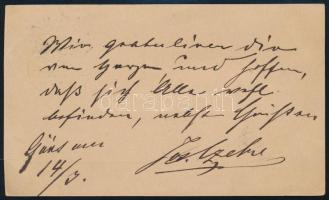 Wir gratuliren dir
von Herzen und hoffen,
daß sich Alle wohl
befinden, nebst Grüßen
Göns am
14/3. Jos. Czeke